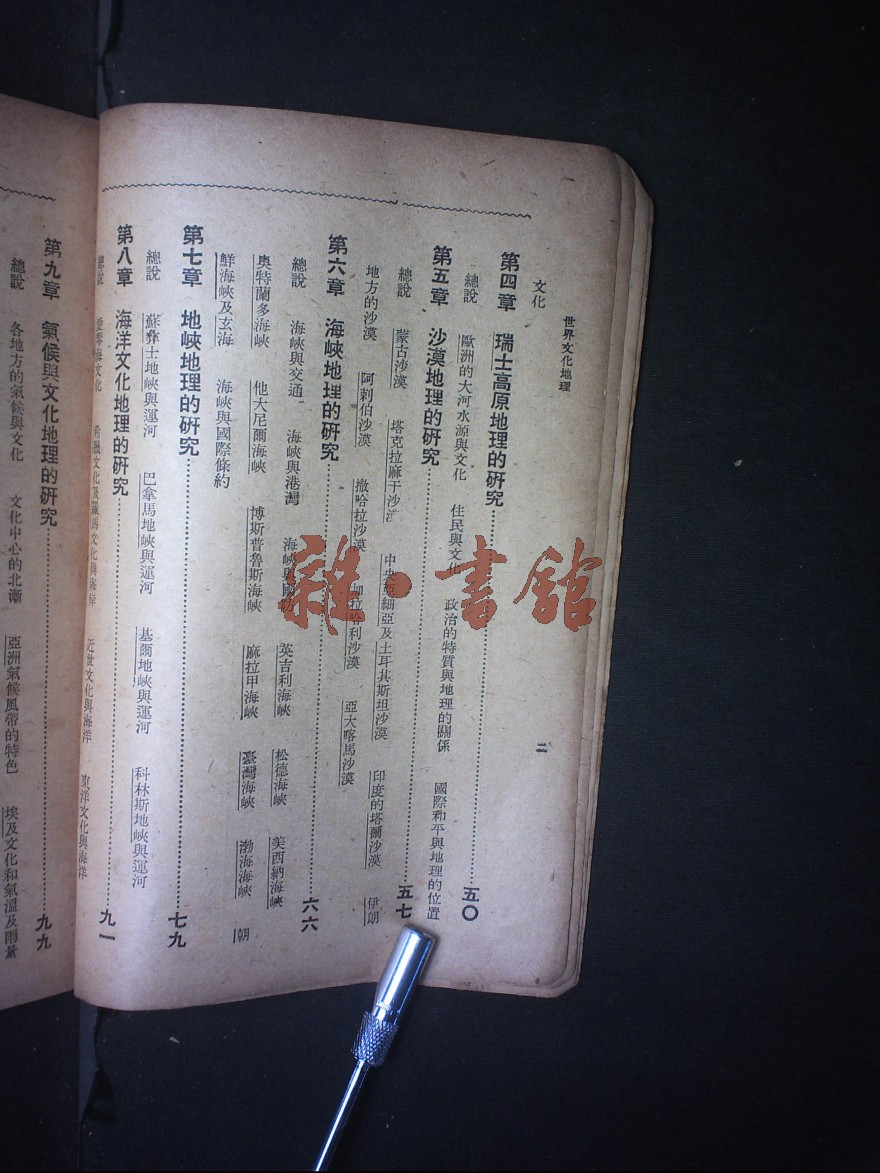 世界文化地理
二
文化
第四章 瑞士高原地理的研究 五〇
總說 歐洲的大河水源與文化 住民與文化 政治的特質與地理的關係 國際和平與地理的位置
第五章 沙漠地理的研究 五七
總說 蒙古沙漠 塔克拉麻干沙漠 中央亞細亞及土耳其斯坦沙漠 印度的塔爾沙漠 伊朗
地方的沙漠 阿剌伯沙漠 撒哈拉沙漠 加拉哈利沙漠 亞大喀馬沙漠
第六章 海峽地理的研究 六六
總說 海峽與交通 海峽與港灣 海峽與國防 英吉利海峽 松德海峽 美西納海峽
奧特蘭多海峽 他大尼爾海峽 博斯普魯斯海峽 麻拉甲海峽 臺灣海峽 渤海海峽 朝
鮮海峽及玄海 海峽與國際條約
第七章 地峽地理的研究 七九
總說 蘇彝士地峽與運河 巴拿馬地峽與運河 基爾地峽與運河 科林斯地峽與運河
第八章 海洋文化地理的研究 九一
總說 愛琴海文化 希臘文化及羅馬文化與海岸 近世文化與海洋 東洋文化與海洋
第九章 氣候與文化地理的研究 九九
總說 各地方的氣候與文化 文化中心的北漸 亞洲氣候風帶的特色 埃及文化和氣溫及雨量
雜·書館